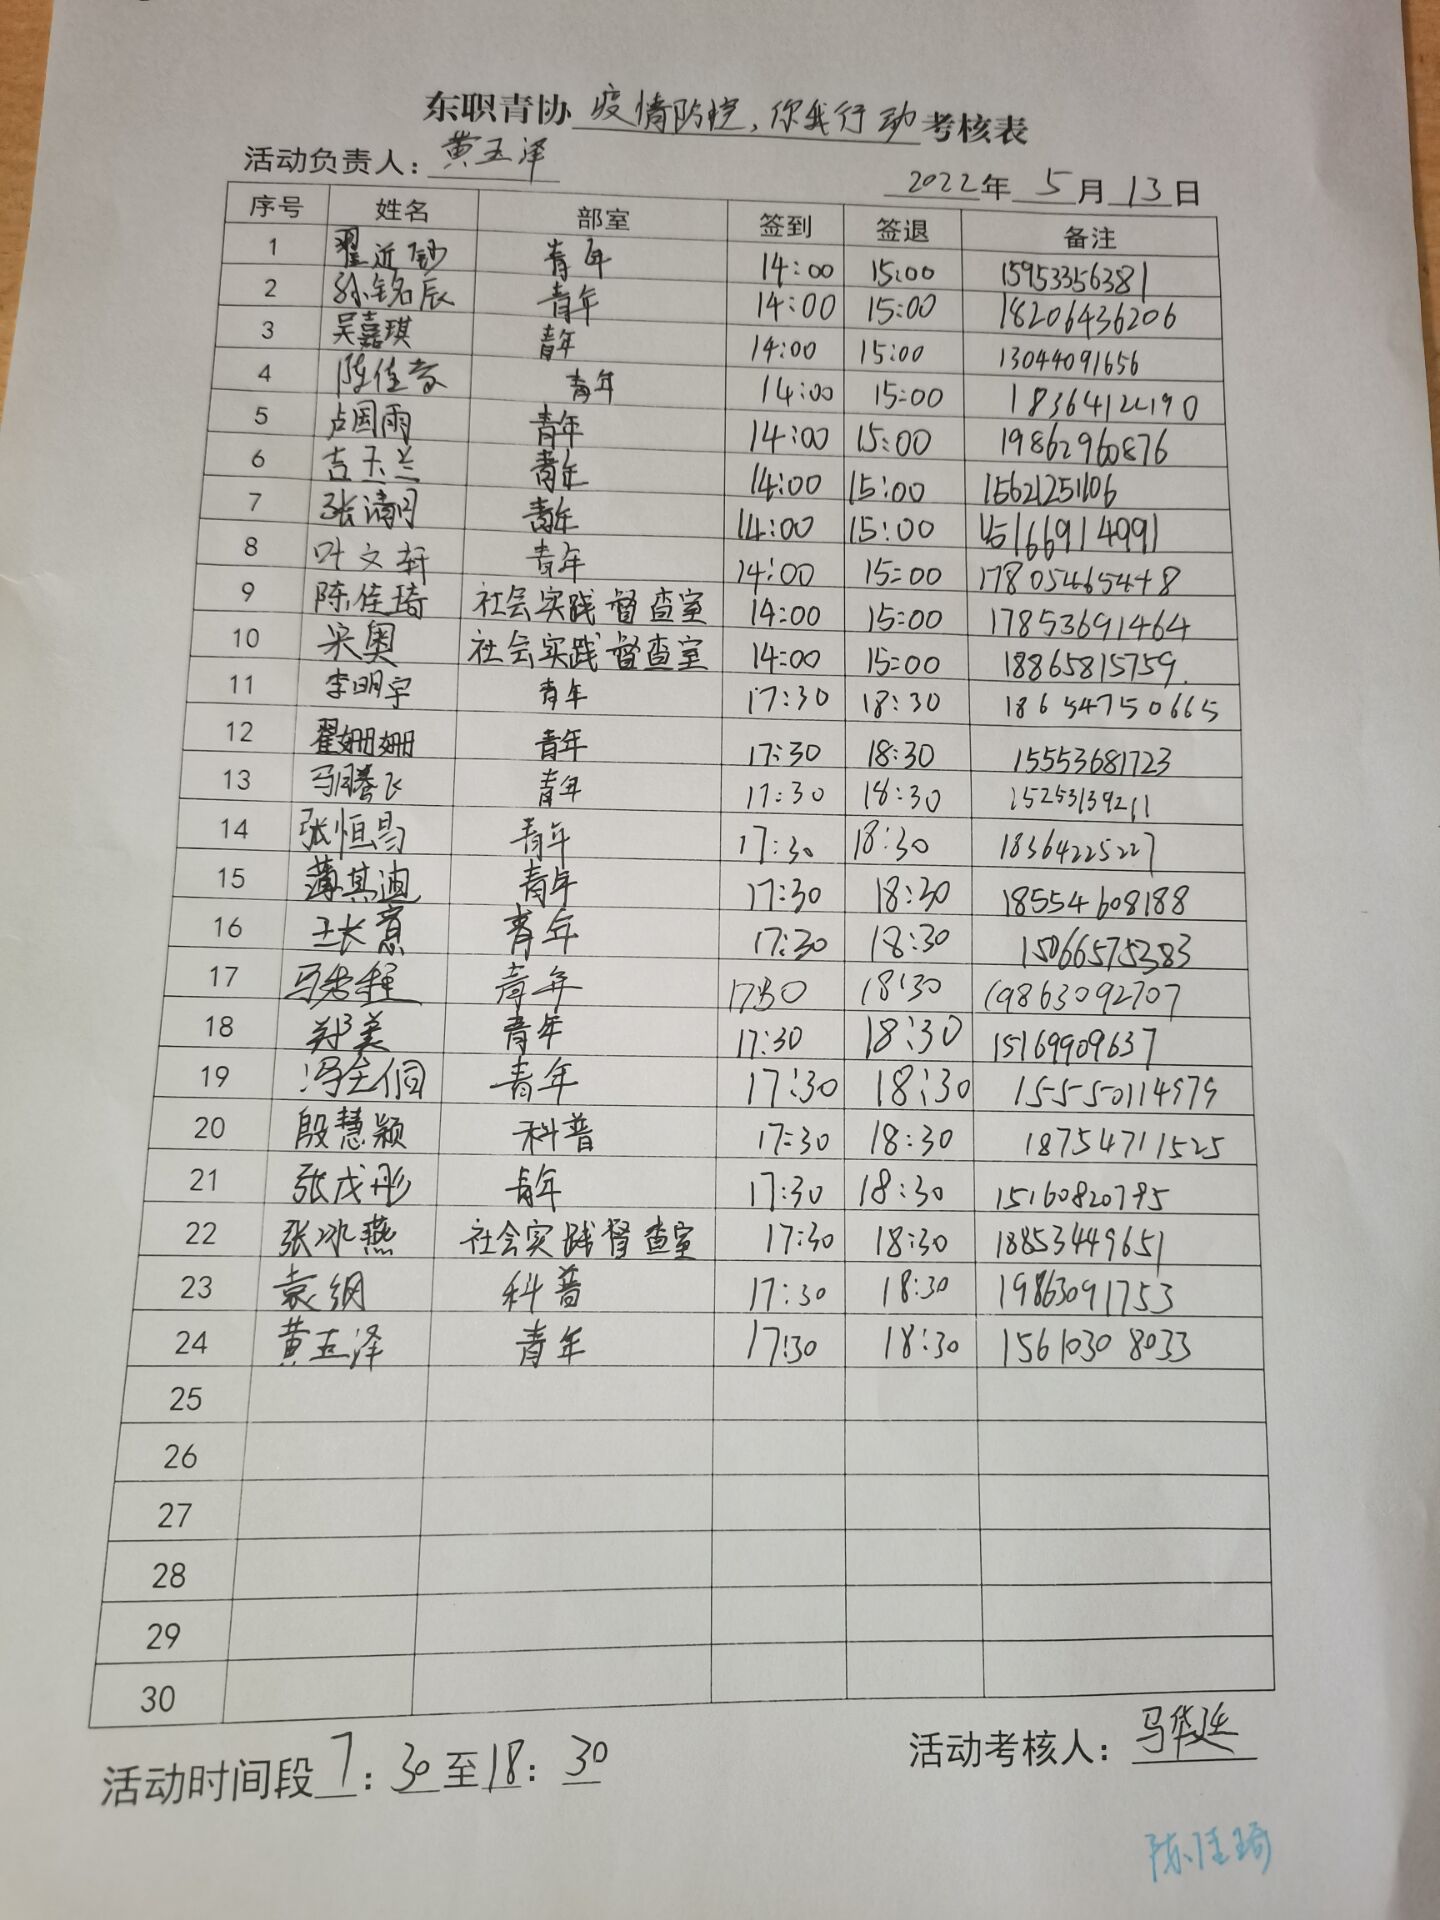 东职青协 疫情防控,你我行动 考核表
活动负责人: 黄玉泽
2022年 5月 13日
序号 姓名 部室 签到 签退 备注
1 青年 14:00 15:00 15953356381
2 孙铭辰 青年 14:00 15:00 18206436206
3 吴嘉琪 青年 14:00 15:00 13044091656
4 青年 14:00 15:00 18364124190
5 卢国雨 青年 14:00 15:00 19862960876
6 吉玉兰 青年 14:00 15:00 15621251106
7 张清月 青年 14:00 15:00
8 叶文轩 青年 14:00 15:00 17805465448
9 陈佳琦 社会实践督查室 14:00 15:00 17853691464
10 宋奥 社会实践督查室 14:00 15:00 18865815759.
11 李明宇 青年 17:30 18:30 18654750665
12 翟姗姗 青年 17:30 18:30 15553681723
13 马腾飞 青年 17:30 18:30 15253139211
14 张恒昌 青年 17:30 18:30 18364225227
15 薄其迪 青年 17:30 18:30 18554608188
16 王长意 青年 17:30 18:30 15066575383
17 青年 17:30 18:30 19863092707
18 郑美 青年 17:30 18:30 15169909637
19 青年 17:30 18:30
20 殷慧颖 科普 17:30 18:30 18754711525
21 张戊彤 青年 17:30 18:30 15160820795
22 张冰燕 社会实践督查室 17:30 18:30 18853449651
23 袁纲 科普 17:30 18:30 19863091753
24 黄玉泽 青年 17:30 18:30 15610308033
25
26
27
28
29
30
活动时间段 7:30至18:30
活动考核人: 马华延
陈佳琦